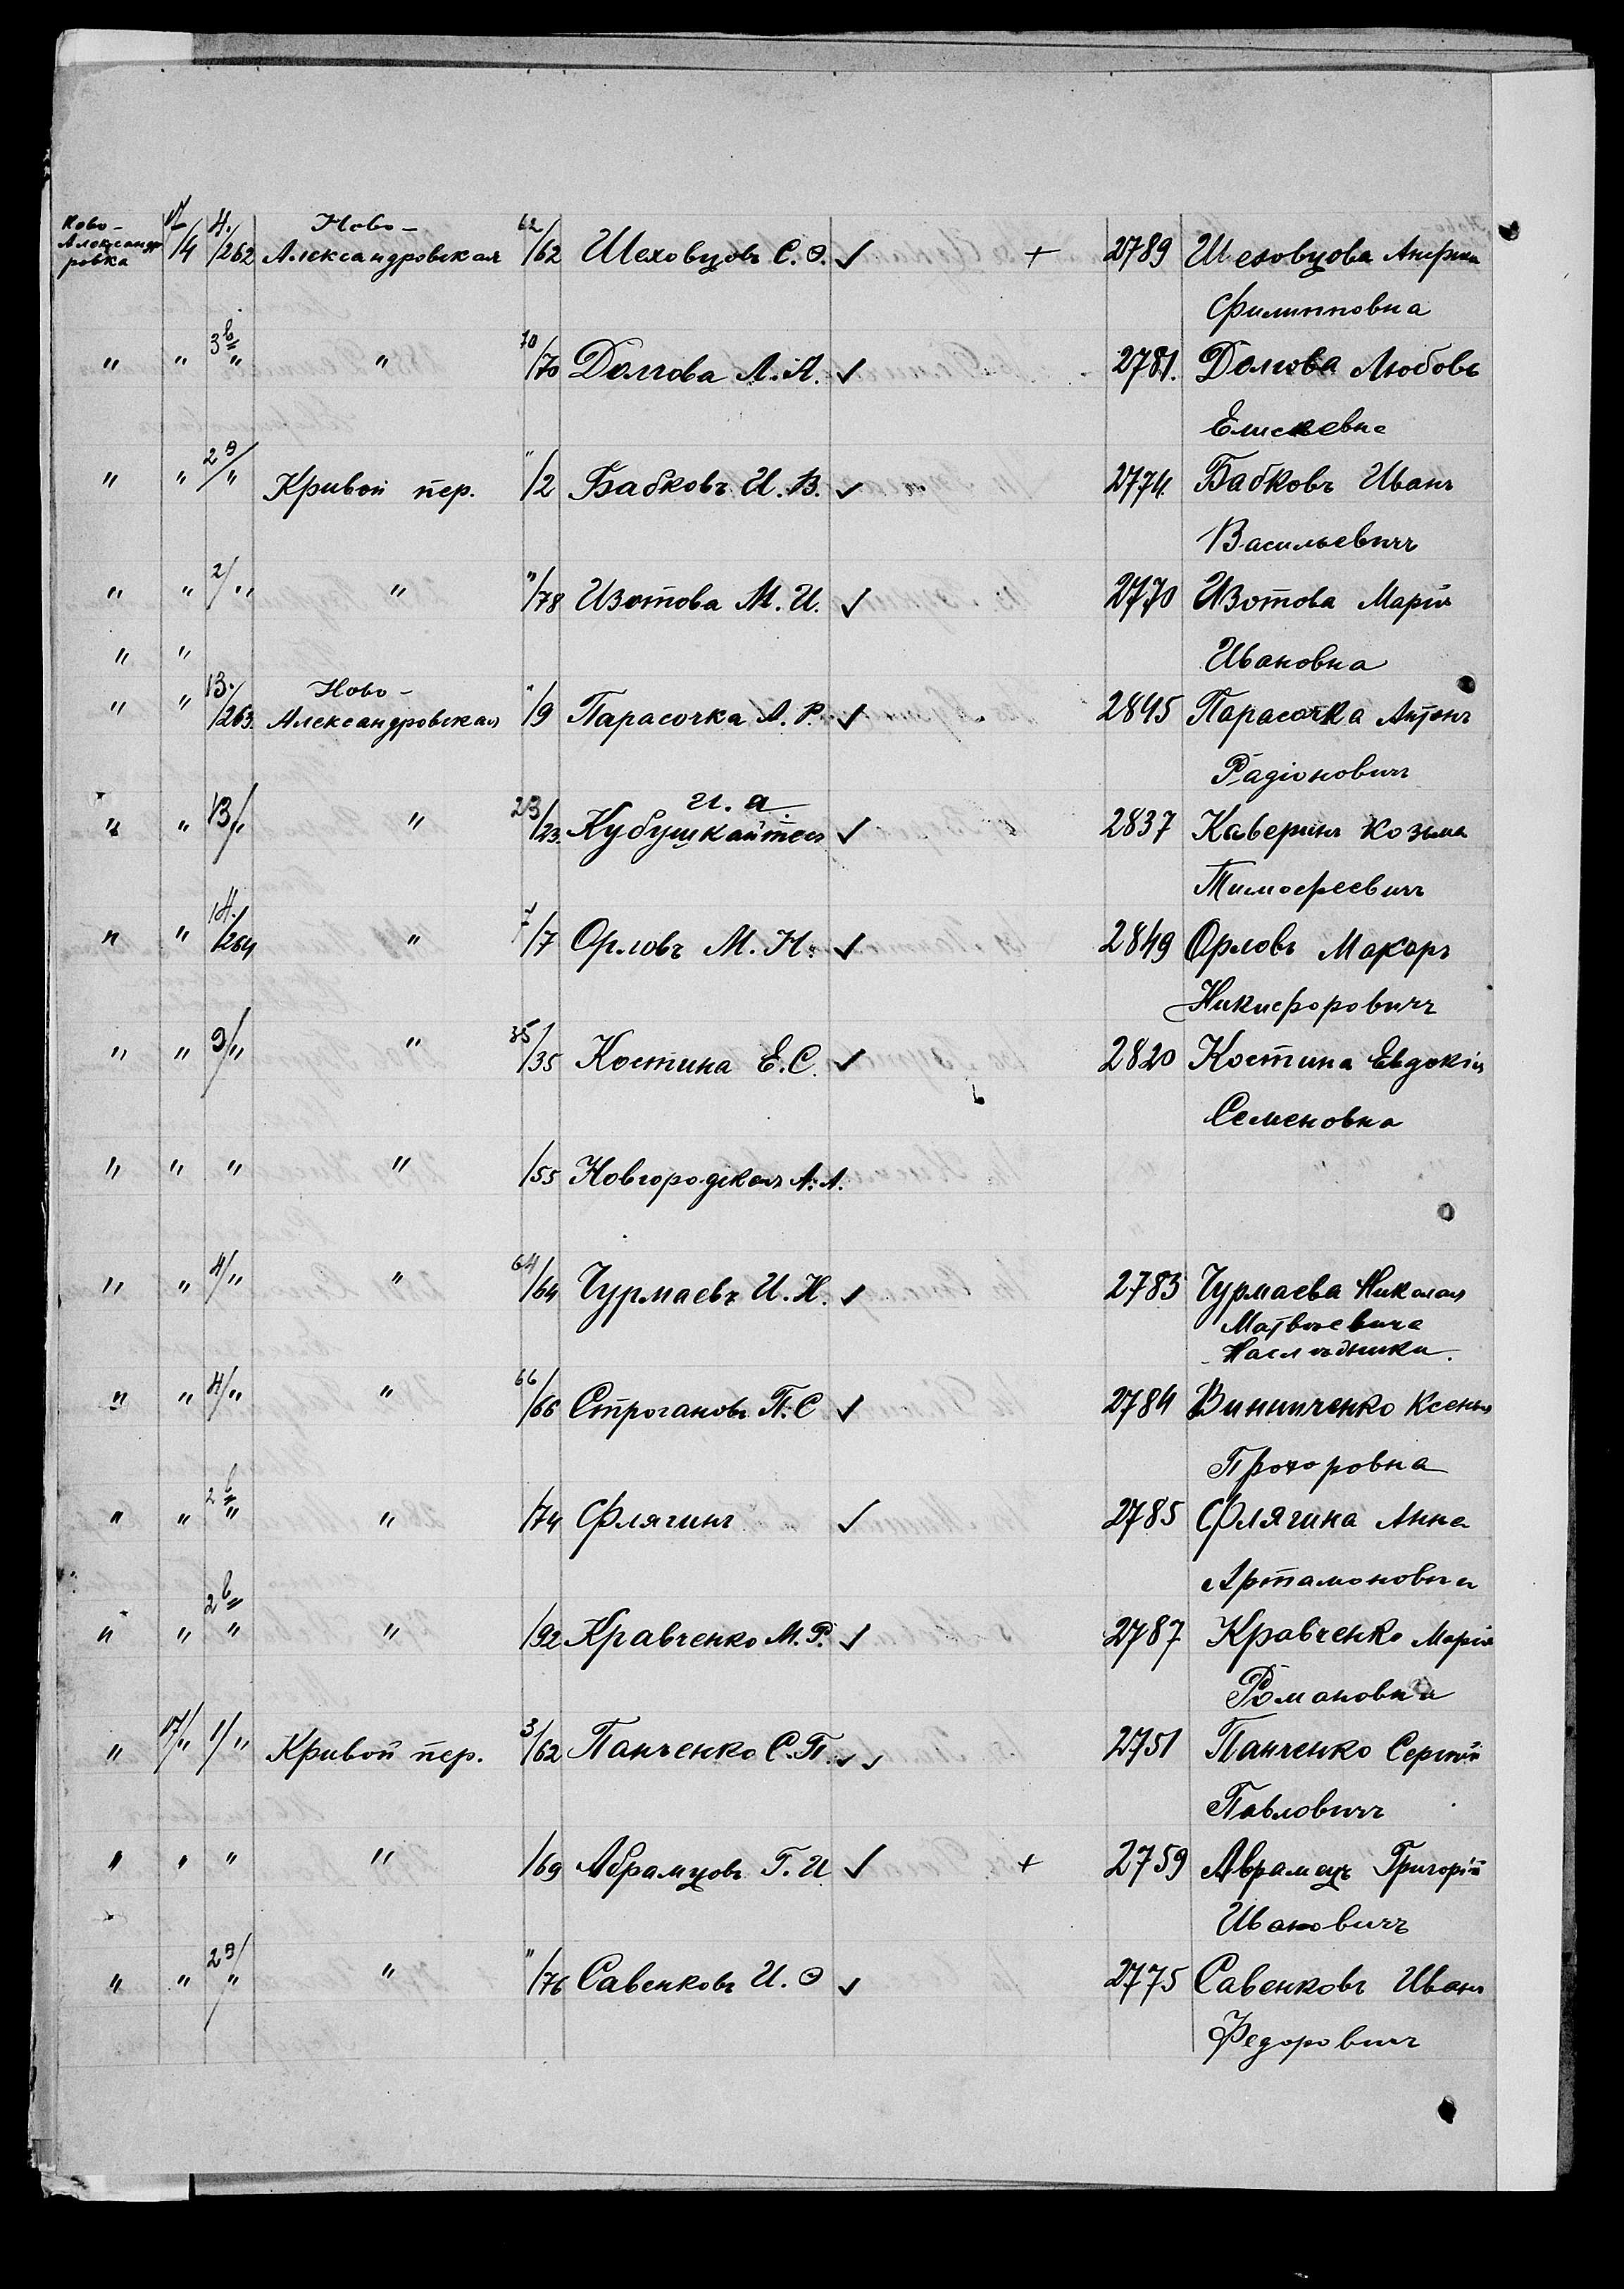 Ново- 17 4. Ново- 62
Александровка /4 /262 Александровская /62 Шеховцовъ С. Ѳ. ✓ + 2789 Шеховцова
Филипповна
" " 3 в/" " 70/70 Долгова Л. А. ✓ 2781. Долгова Любовь
Елисѣевна
" " 2 э/" Кривой пер. "/2 Бабковъ И. В. ✓ 2774. Бабковъ Иванъ
Васильевичъ
" " 2/" " "/78 Изотова М. И. ✓ 2770 Изотова Марія
" " Ивановна
" " 13./263. Ново-Александровская "/9 Парасочка А. Р. ✓ 2845 Парасочка Антонъ
Радіоновичъ
И. А.
" " 13/" " 23/23. Кубушкайтесъ ✓ 2837 Каверинъ Козьма
Тимофеевичъ
" " 14./264 " 7/7 Орловъ М. Н. ✓ 2849 Орловъ Макаръ
Никифоровичъ
" " 9/" " 35/35 Костина Е. С. ✓ 2820 Костина Евдокія
Семеновна
" " " " /55 Новгородская А. А.
" " 4/" " 64/64 Чурмаевъ И. Н. ✓ 2783 Чурмаева Николая
Матвѣевича
Наслѣдники.
" " 4/" " 66/66 Строгановъ П. С ✓ 2784 Винниченко Ксенья
Прохоровна
" " 2 в/" " /74 Флягинъ ✓ 2785 Флягина Анна
Артамоновна
" " 2 в/" " /92 Кравченко М. Р. ✓ 2787 Кравченко Марія
Романовна
" 17/" 1/" Кривой пер. 3/62 Панченко С. П. ✓ ✓ 2751 Панченко Сергѣй
Павловичъ
" " " " /69 Абрамцовъ Г. И ✓ + 2759 Аврамецъ Григорій
Ивановичъ
" " 2 э/" " "/76 Савенковъ И. Ѳ ✓ 2775 Савенковъ Иванъ
Федоровичъ